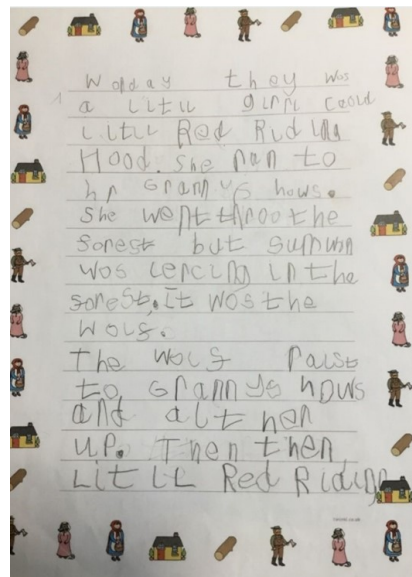 Wonday they wos
a Litil girrl Cauld
Littil Red Riding
Hood. She ran to
hr Grannys hows.
She went throo the
forest but sumwn
wos lercing in the
forest. it wos the
wolf.
The wolf raist
to Grannys hows
and alt her
up. Then then
Litill Red Riding